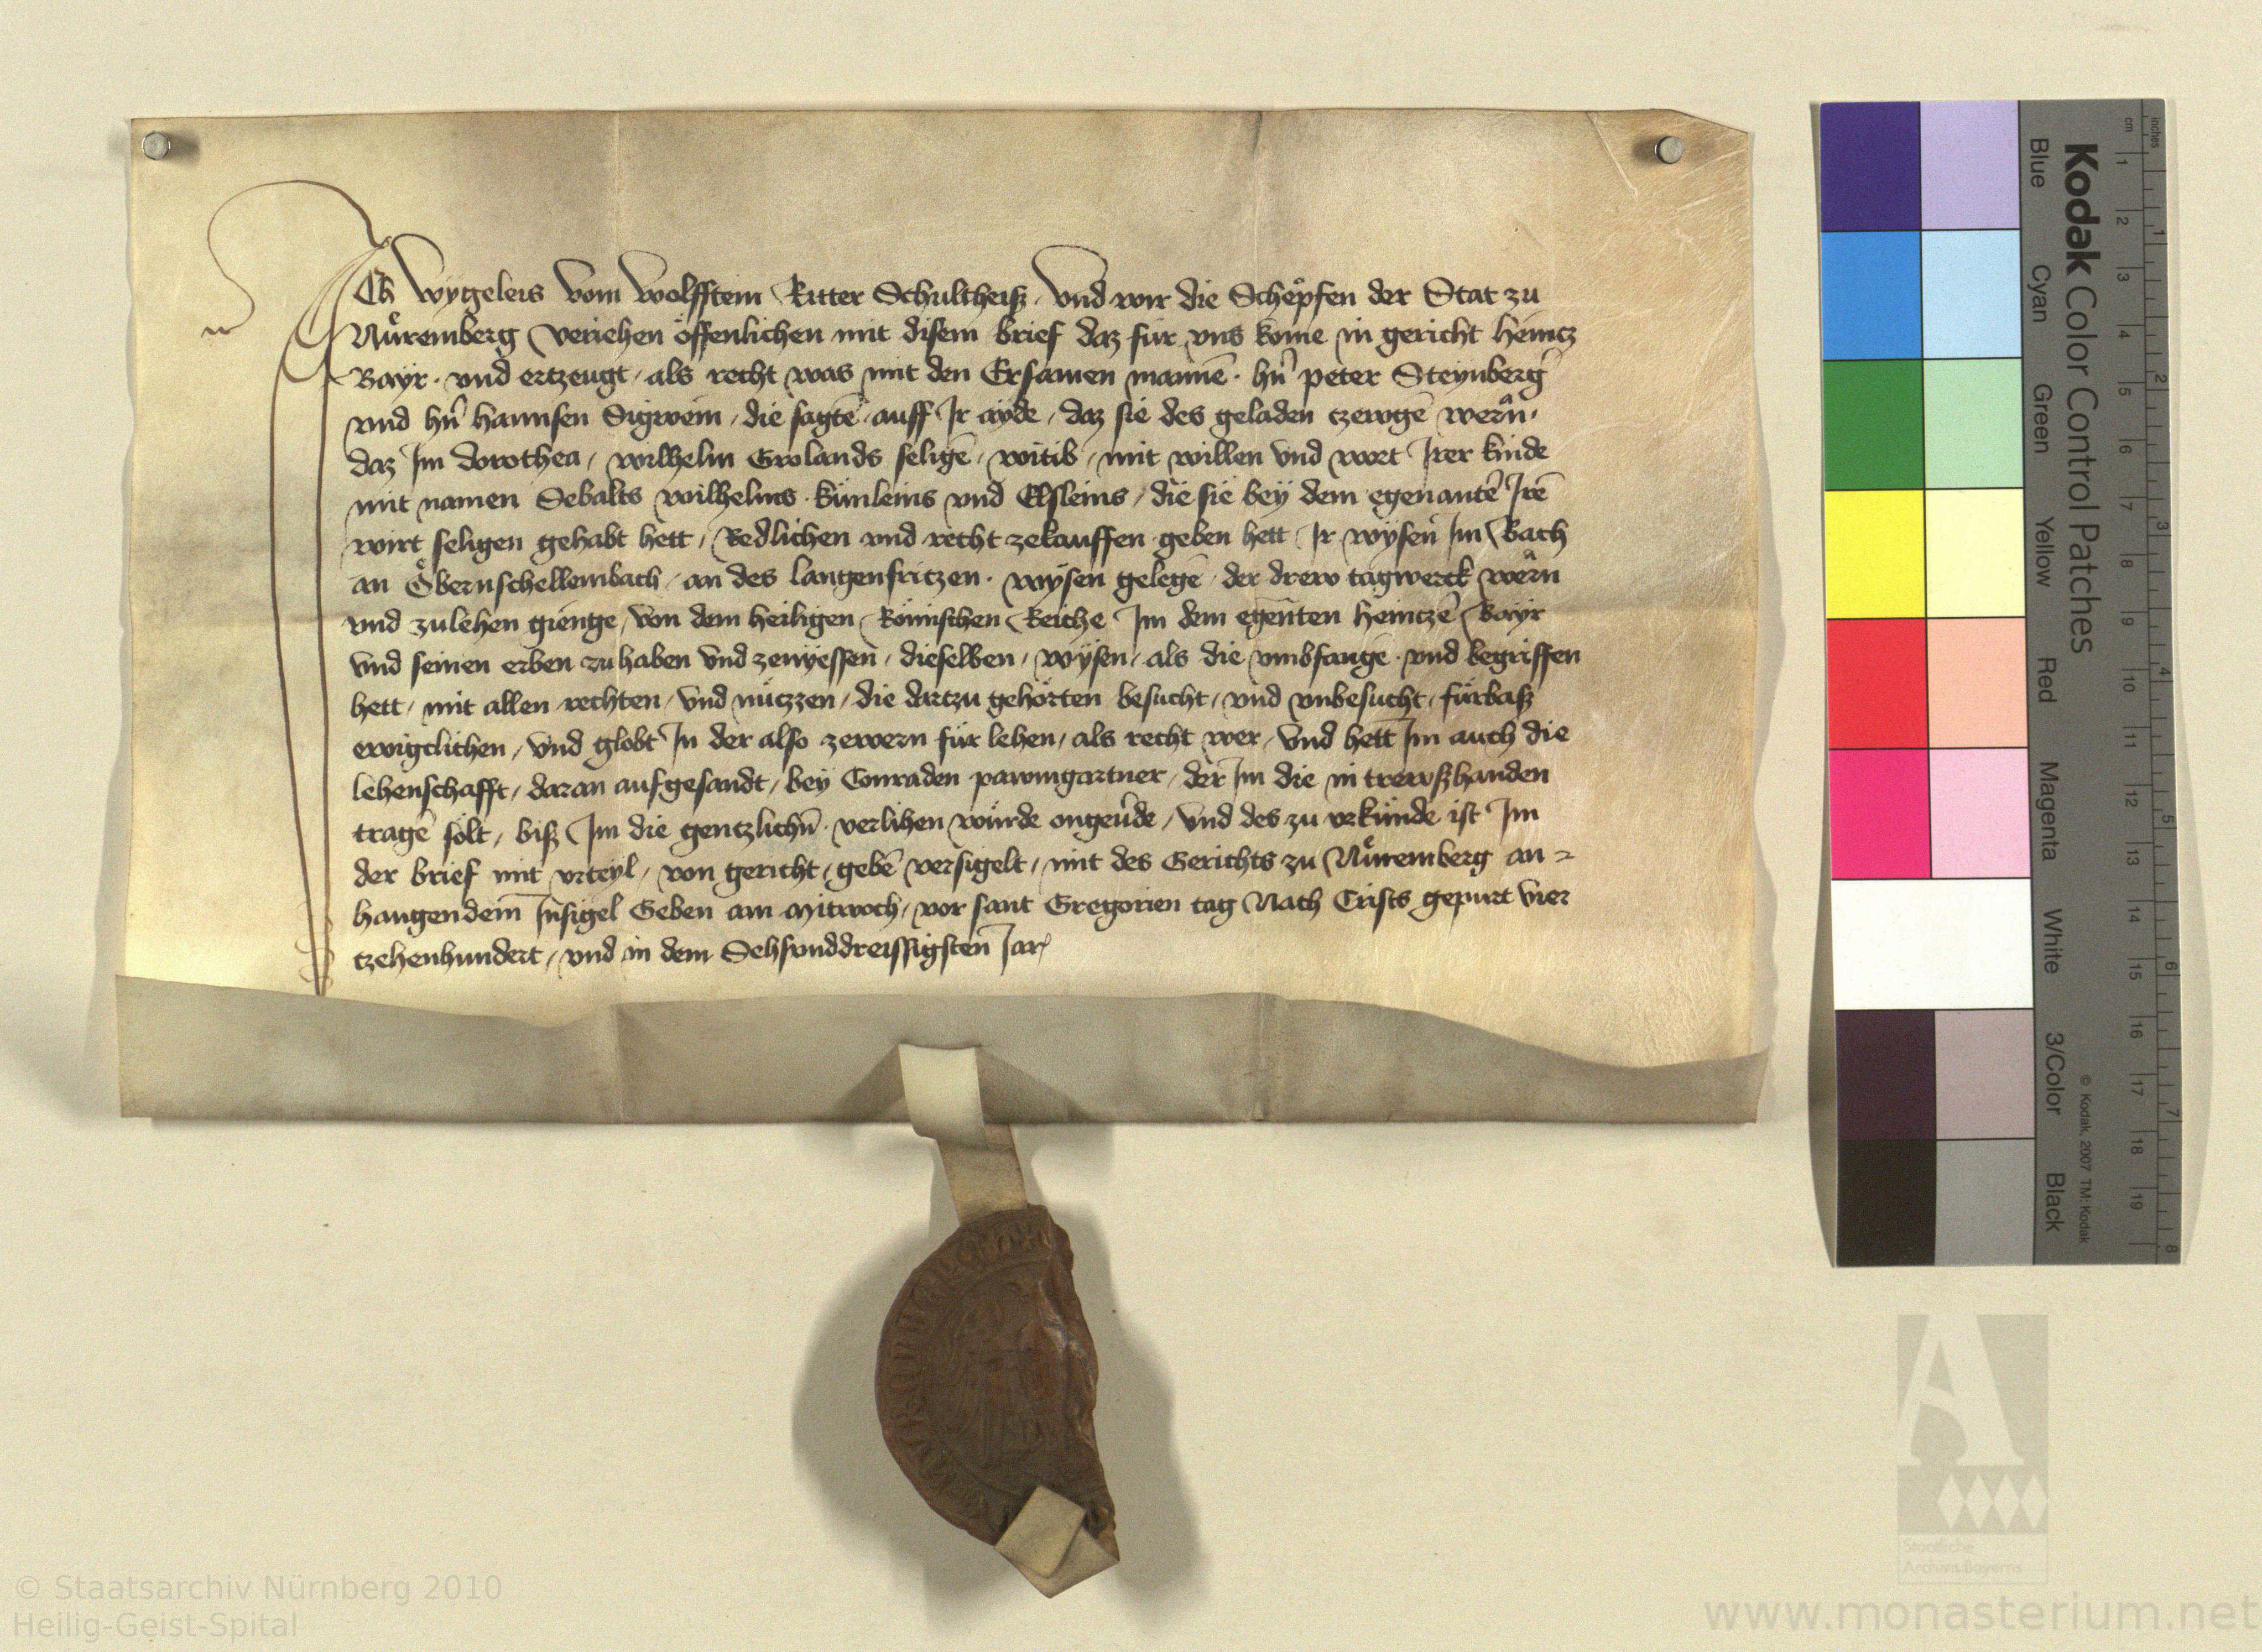 ICh Wygeleis vom Wolfstein Ritter Schultheiß / Vnd wir die Schepfen der Stat zu
Nuͤremberg veriehen offenlichen mit disem brief daz für vns kome in gericht Heintz
Bayr · vnd ertzeugt / als recht was mit den Ersamen mannē · hn̄ peter Steynberḡ
vnd hn̄ hannsen Sigwein / die sagtē / auff Ir ayde / daz sie des geladen tzewgē wern̄ ·
daz Im dorothea / wilhelm Grolands seligē / witib / mit willen vnd wort Irer kinde
mit namen Sebalts wilhelms · künleins vnd Elsleins / die sie bey dem egenantē Irē
wirt seligen gehabt hett / Redlichen vnd recht zekauffen geben hett Ir wysen Im Bach
an Obernschellembach / an des langenfritzen · wysen gelegē / der drew tagwerck wern
vnd zulehen gienge / von dem heiligen Römischen Reiche Im dem egen̄ten heintzē Bayr
vnd seinen erben zu haben vnd zenyessen / dieselben / wysen / als die vmbfangē · vnd begriffen
hett / mit allen rechten / vnd nützzen / die dartzu gehörten besucht / vnd vnbesucht / fürbaß
ewigclichen / vnd globt In der also zewern für lehen / als recht wer / vnd hett Im auch die
lehenschafft / daran aufgesandt / bey Conraden pawmgartner / der Im die in trewßhanden
tragē sölt / biß Im die gentzlichn̄ · verlihen würde ongeu̅de / vnd des zu vrkunde ist Im
der brief mit vrteyl / von gericht / gebē versigelt / mit des Gerichts zu Nuͤremberg an =
hangendem Insigel Geben am Mitwoch / vor sant Gregorien tag Nach Crists gepurt vier
tzehenhundert / vnd in dem Sehsvnddreissigsten Jar
Kodak Color Control Patches
Blue Cyan Green Yellow Red Magenta White 3/Color Black
© Kodak, 2007 TM: Kodak
inches 1 2 3 4 5 6 7 8
cm 1 2 3 4 5 6 7 8 9 10 11 12 13 14 15 16 17 18 19
A
Staatliche
Archive Bayerns
© Staatsarchiv Nürnberg 2010
Heilig-Geist-Spital
www.monasterium.net